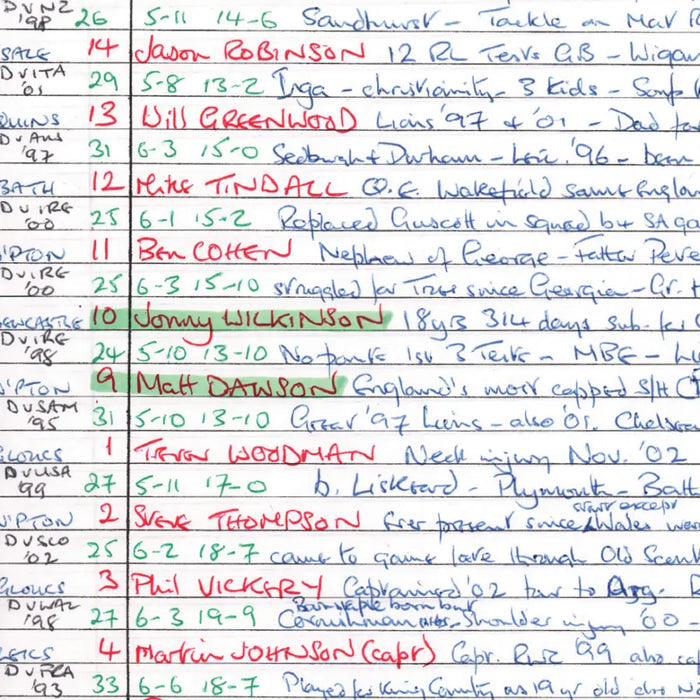 DvNZ '98 26 5-11 14-6 Sandhurst - Tackle on Mat
SALE 14 Jason ROBINSON 12 RL Tests GB - Wigan
DvITA '01 29 5-8 13-2 Inga - christianity - 3 kids - Soup
QUINS 13 Will GREENWOOD Lions '97 & '01 - Dad
DvAus '97 31 6-3 15-0 Sedbergh & Durham - Leic. '96 - bean
BATH 12 Mike TINDALL Q.E. Wakefield same England
DvIRE '00 25 6-1 15-2 Replaced Guscott in squad b4 SA ga
N'PTON 11 Ben COHEN Nephew of George - Father Pete
DvIRE '00 25 6-3 15-10 struggled for Tries since Georgia - Gr.
NEWCASTLE 10 Jonny WILKINSON 18yrs 314 days sub. for
DvIRE '98 24 5-10 13-10 No points 1st 3 Tests - MBE -
N'PTON 9 Matt DAWSON England's most capped S/H
DvSAM '95 31 5-10 13-10 Great '97 Lions - also '01. Chelsea
GLOUCS 1 Trevor WOODMAN Neck injury Nov. '02
DvUSA '99 27 5-11 17-0 b. Liskeard - Plymouth - Batt
N'PTON 2 Steve THOMPSON Ever present since Wales
start except
DvSCO '02 25 6-2 18-7 came to game late through Old Scout
GLOUCS 3 Phil VICKERY Captained '02 tour to Arg.
Barnstaple born but
DvWAL '98 27 6-3 19-9 Cornishman - Shoulder injury '00 -
LEICS 4 Martin JOHNSON (capt) Capt. RWC '99 also
DvFRA '93 33 6-6 18-7 Played for King Country as 19 yr old also